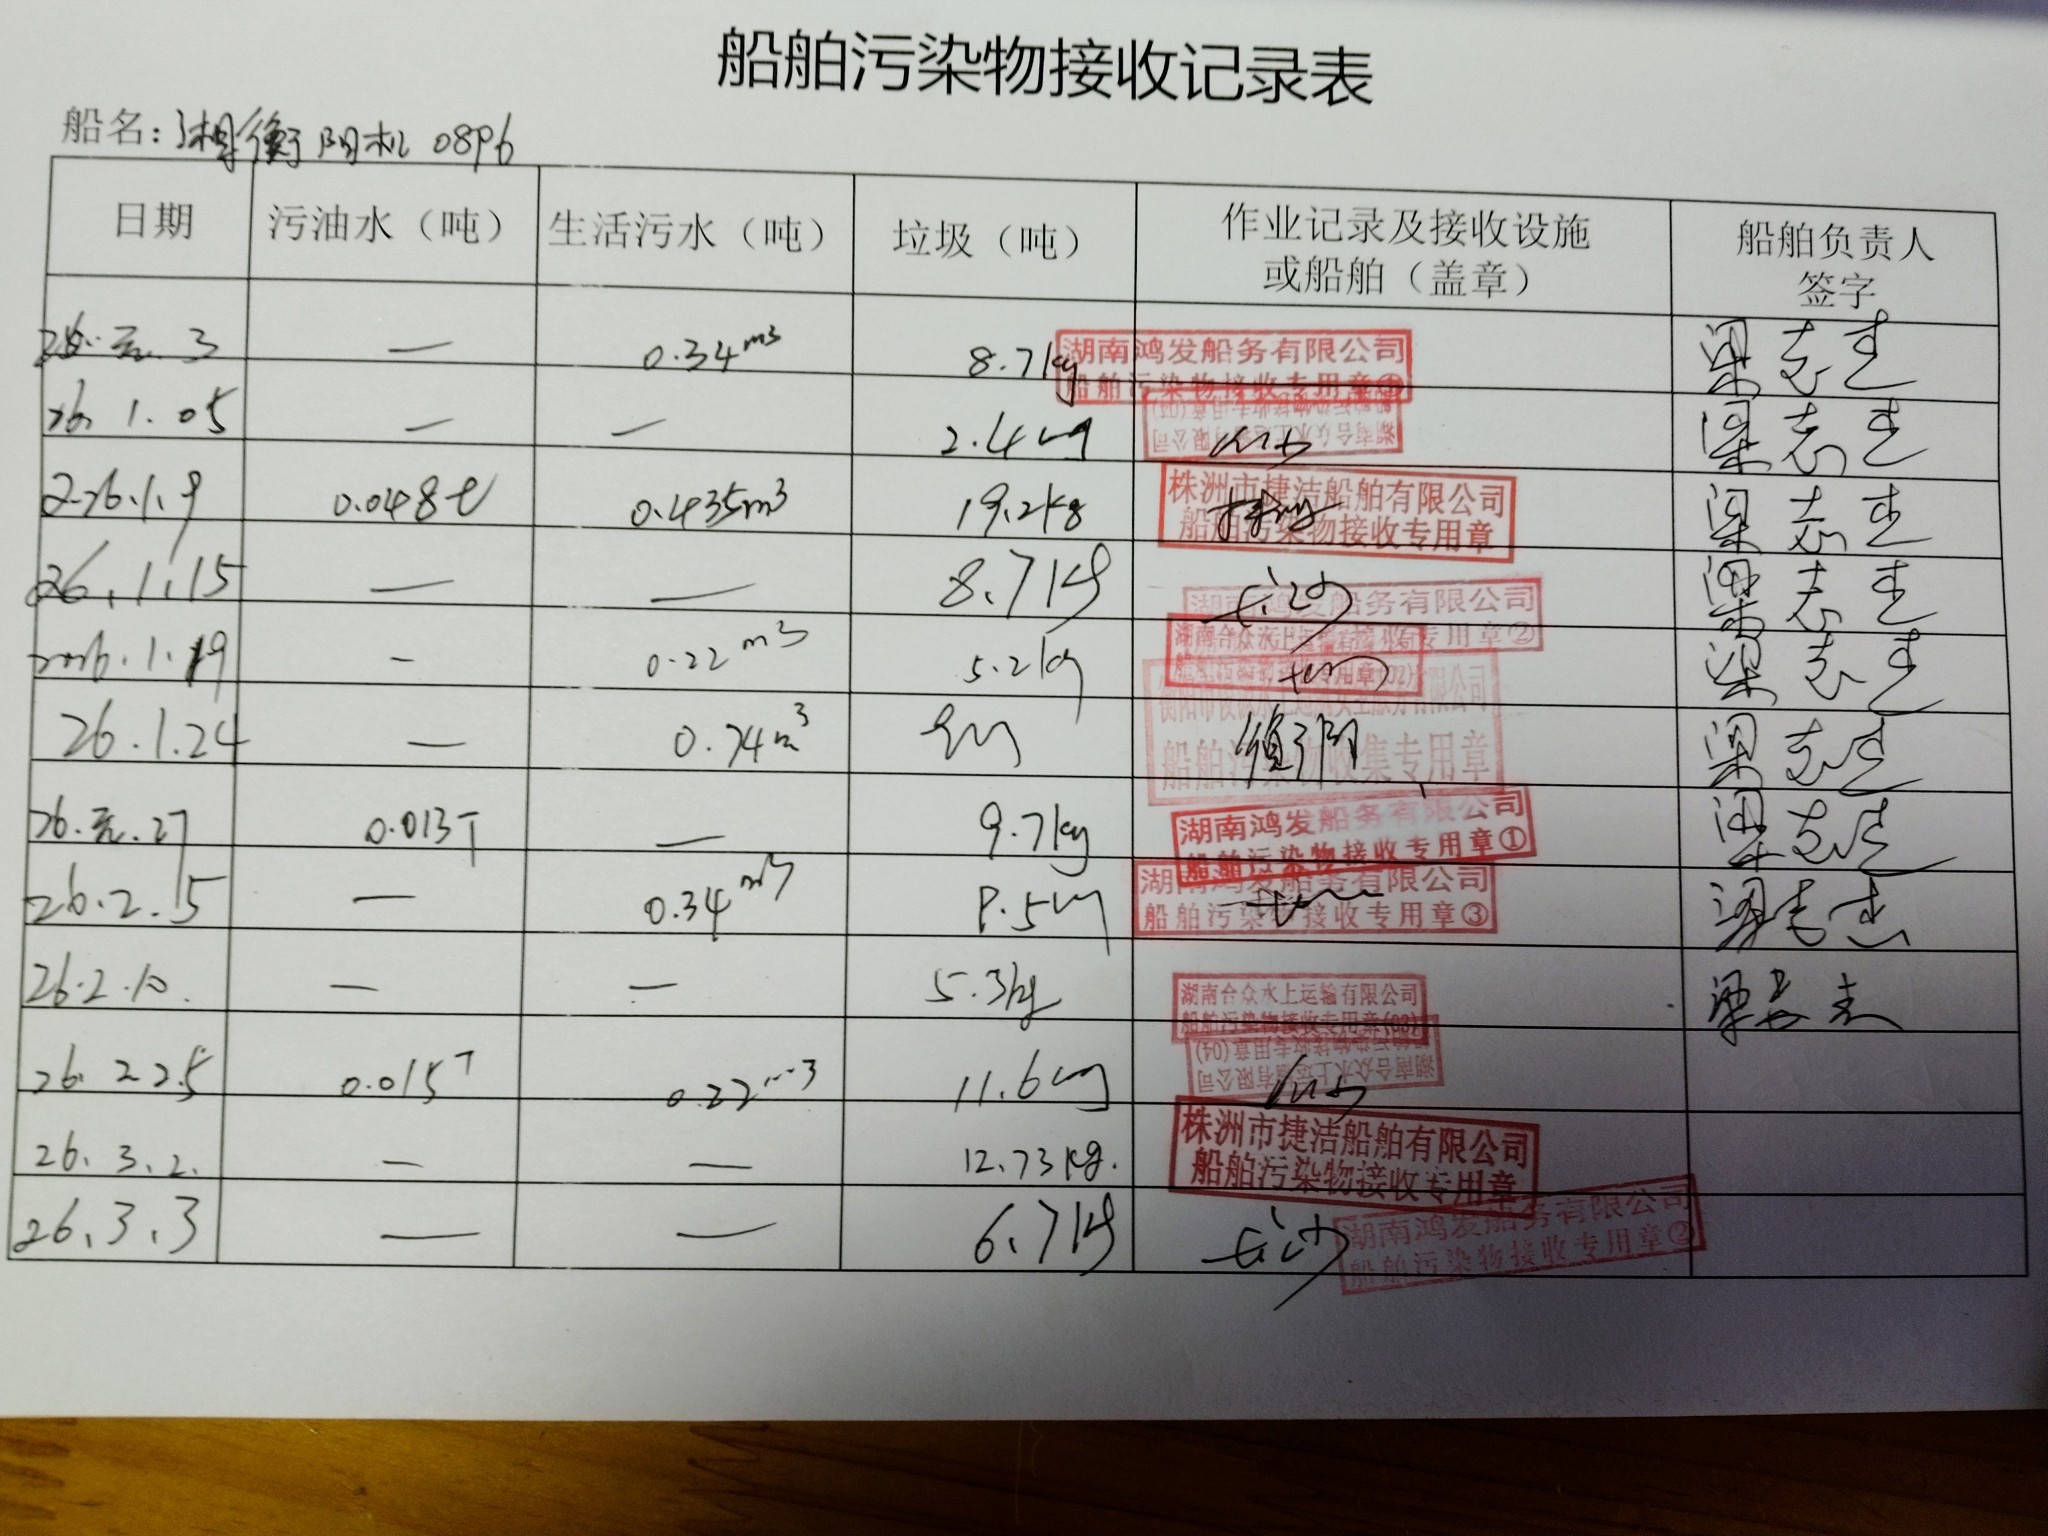 船舶污染物接收记录表
船名：湘衡阳机 0896
日期 污油水（吨） 生活污水（吨） 垃圾（吨） 作业记录及接收设施或船舶（盖章） 船舶负责人签字
26.元.3 — 0.34m³ 8.7kg 湖南鸿发船务有限公司 船舶污染物接收专用章 梁志
26.1.05 — — 2.4kg 湖南合众水上运输有限公司 船舶污染物接收专用章(04) 梁志
2026.1.9 0.048t 0.435m³ 19.2kg 株洲市捷洁船舶有限公司 船舶污染物接收专用章 梁志
26.1.15 — — 8.7kg 长沙 湖南鸿发船务有限公司 专用章② 梁志
2026.1.19 - 0.22m³ 5.2kg 湖南合众水上运输有限公司 船舶污染物接收专用章(02) 梁志
26.1.24 — 0.74m³ 衡阳 船舶污染物收集专用章 梁志
26.元.27 0.013T — 9.7kg 湖南鸿发船务有限公司 船舶污染物接收专用章① 梁志
26.2.5 — 0.34m³ 8.5kg 湖南鸿发船务有限公司 船舶污染物接收专用章③ 梁志
26.2.10. — — 5.3kg 湖南合众水上运输有限公司 船舶污染物接收专用章(03) 梁
26.2.25 0.015T 0.22m³ 11.6kg 湖南合众水上运输有限公司 船舶污染物接收专用章(04)
26.3.2. — — 12.73kg. 株洲市捷洁船舶有限公司 船舶污染物接收专用章
26.3.3 — — 6.7kg 长沙 湖南鸿发船务有限公司 船舶污染物接收专用章②